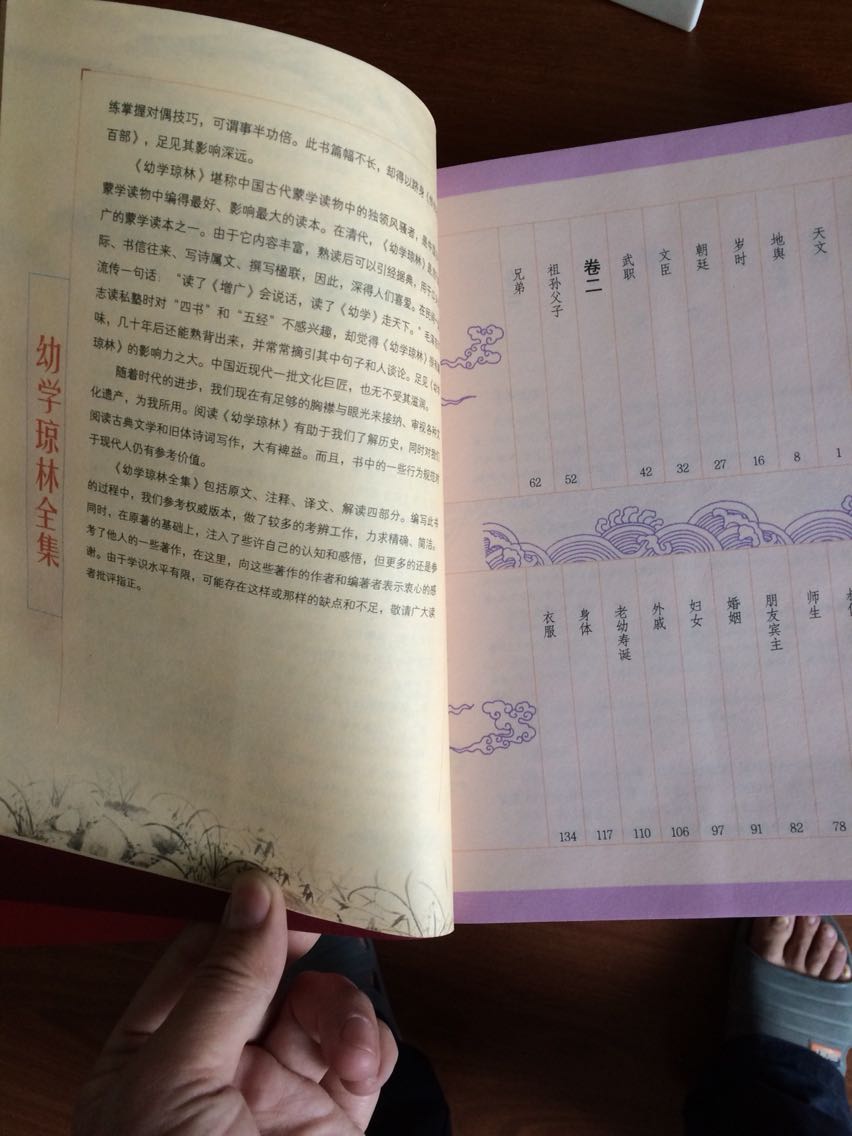 练掌握对偶技巧，可谓事半功倍。此书篇幅不长，却得以跻身《
百部》，足见其影响深远。
《幼学琼林》堪称中国古代蒙学读物中的独领风骚者，是
蒙学读物中编得最好、影响最大的读本。在清代，《幼学琼林》是
广的蒙学读本之一。由于它内容丰富，熟读后可以引经据典，用于
际、书信往来、写诗属文、撰写楹联，因此，深得人们喜爱。在民间
流传一句话：“读了《增广》会说话，读了《幼学》走天下。”毛泽东
志读私塾时对“四书”和“五经”不感兴趣，却觉得《幼学琼林》
味，几十年后还能熟背出来，并常常摘引其中句子和人谈论。足见《幼学
琼林》的影响力之大。中国近现代一批文化巨匠，也无不受其滋润。
随着时代的进步，我们现在有足够的胸襟与眼光来接纳、审视各种文
化遗产，为我所用。阅读《幼学琼林》有助于我们了解历史，同时对我们
阅读古典文学和旧体诗词写作，大有裨益。而且，书中的一些行为规范对
于现代人仍有参考价值。
《幼学琼林全集》包括原文、注释、译文、解读四部分。编写此书
的过程中，我们参考权威版本，做了较多的考辨工作，力求精确、简洁。
同时，在原著的基础上，注入了些许自己的认知和感悟，但更多的还是参
考了他人的一些著作，在这里，向这些著作的作者和编著者表示衷心的感
谢。由于学识水平有限，可能存在这样或那样的缺点和不足，敬请广大读
者批评指正。
幼学琼林全集
天文 1
地舆 8
岁时 16
朝廷 27
文臣 32
武职 42
卷二
祖孙父子 52
兄弟 62
78
师生 82
朋友宾主 91
婚姻 97
妇女 106
外戚 110
老幼寿诞 117
身体 134
衣服